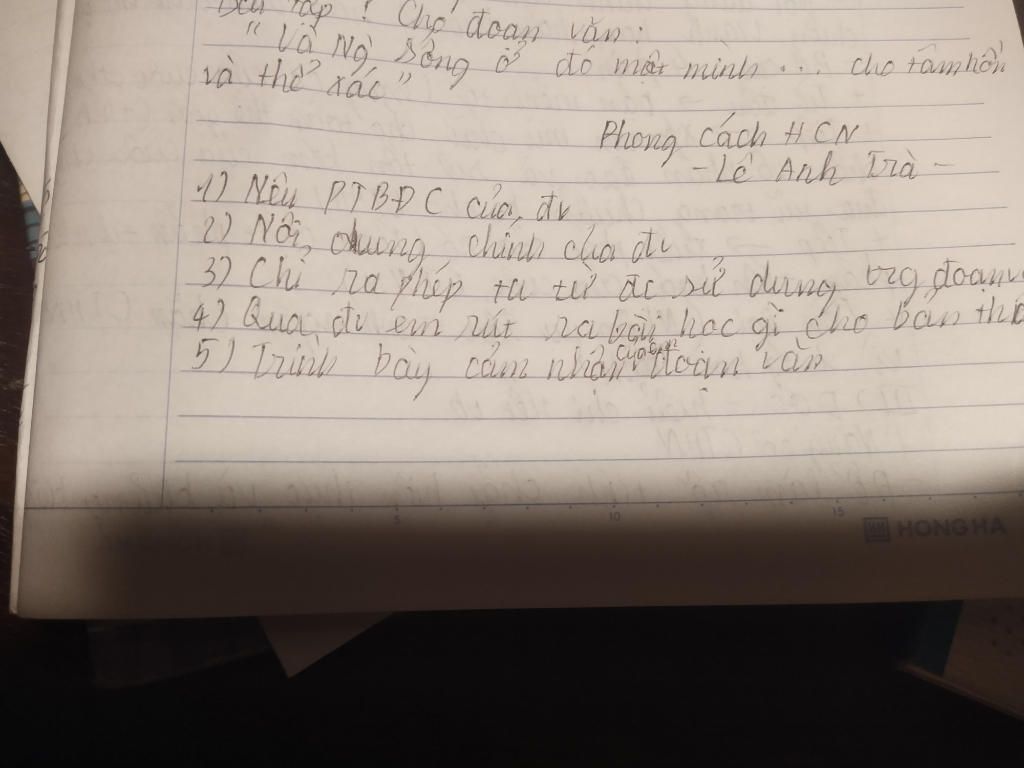 tập : Cho đoạn văn:
" Và Ng sống ở đó một mình ... cho tâm hồn
và thể xác "
Phong cách HCN
- Lê Anh Trà -
1) Nêu PTBĐC của đv
2) Nội dung chính của đv
3) Chỉ ra phép tu từ đc sử dụng trg đoạn v
4) Qua đv em rút ra bài học gì cho bản thâ
5) Trình bày cảm nhận của em đoạn văn
5 10 15
HONG HA